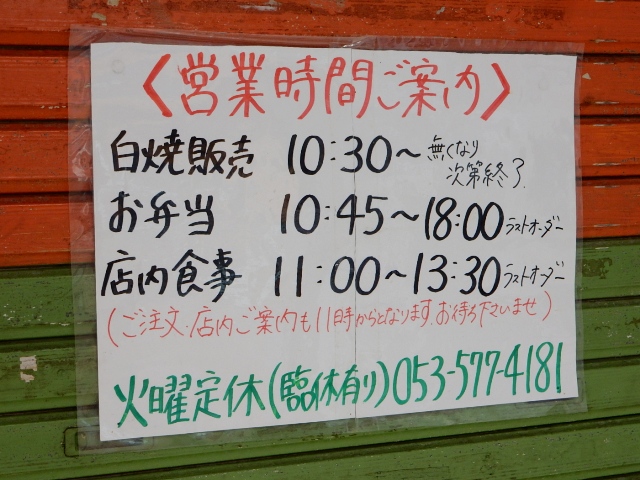 〈営業時間ご案内〉
白焼販売 10:30〜 無くなり次第終了
お弁当 10:45〜18:00 ラストオーダー
店内食事 11:00〜13:30 ラストオーダー
(ご注文・店内ご案内も11時からとなります。お待ち下さいませ)
火曜定休(臨休有り)053-577-4181